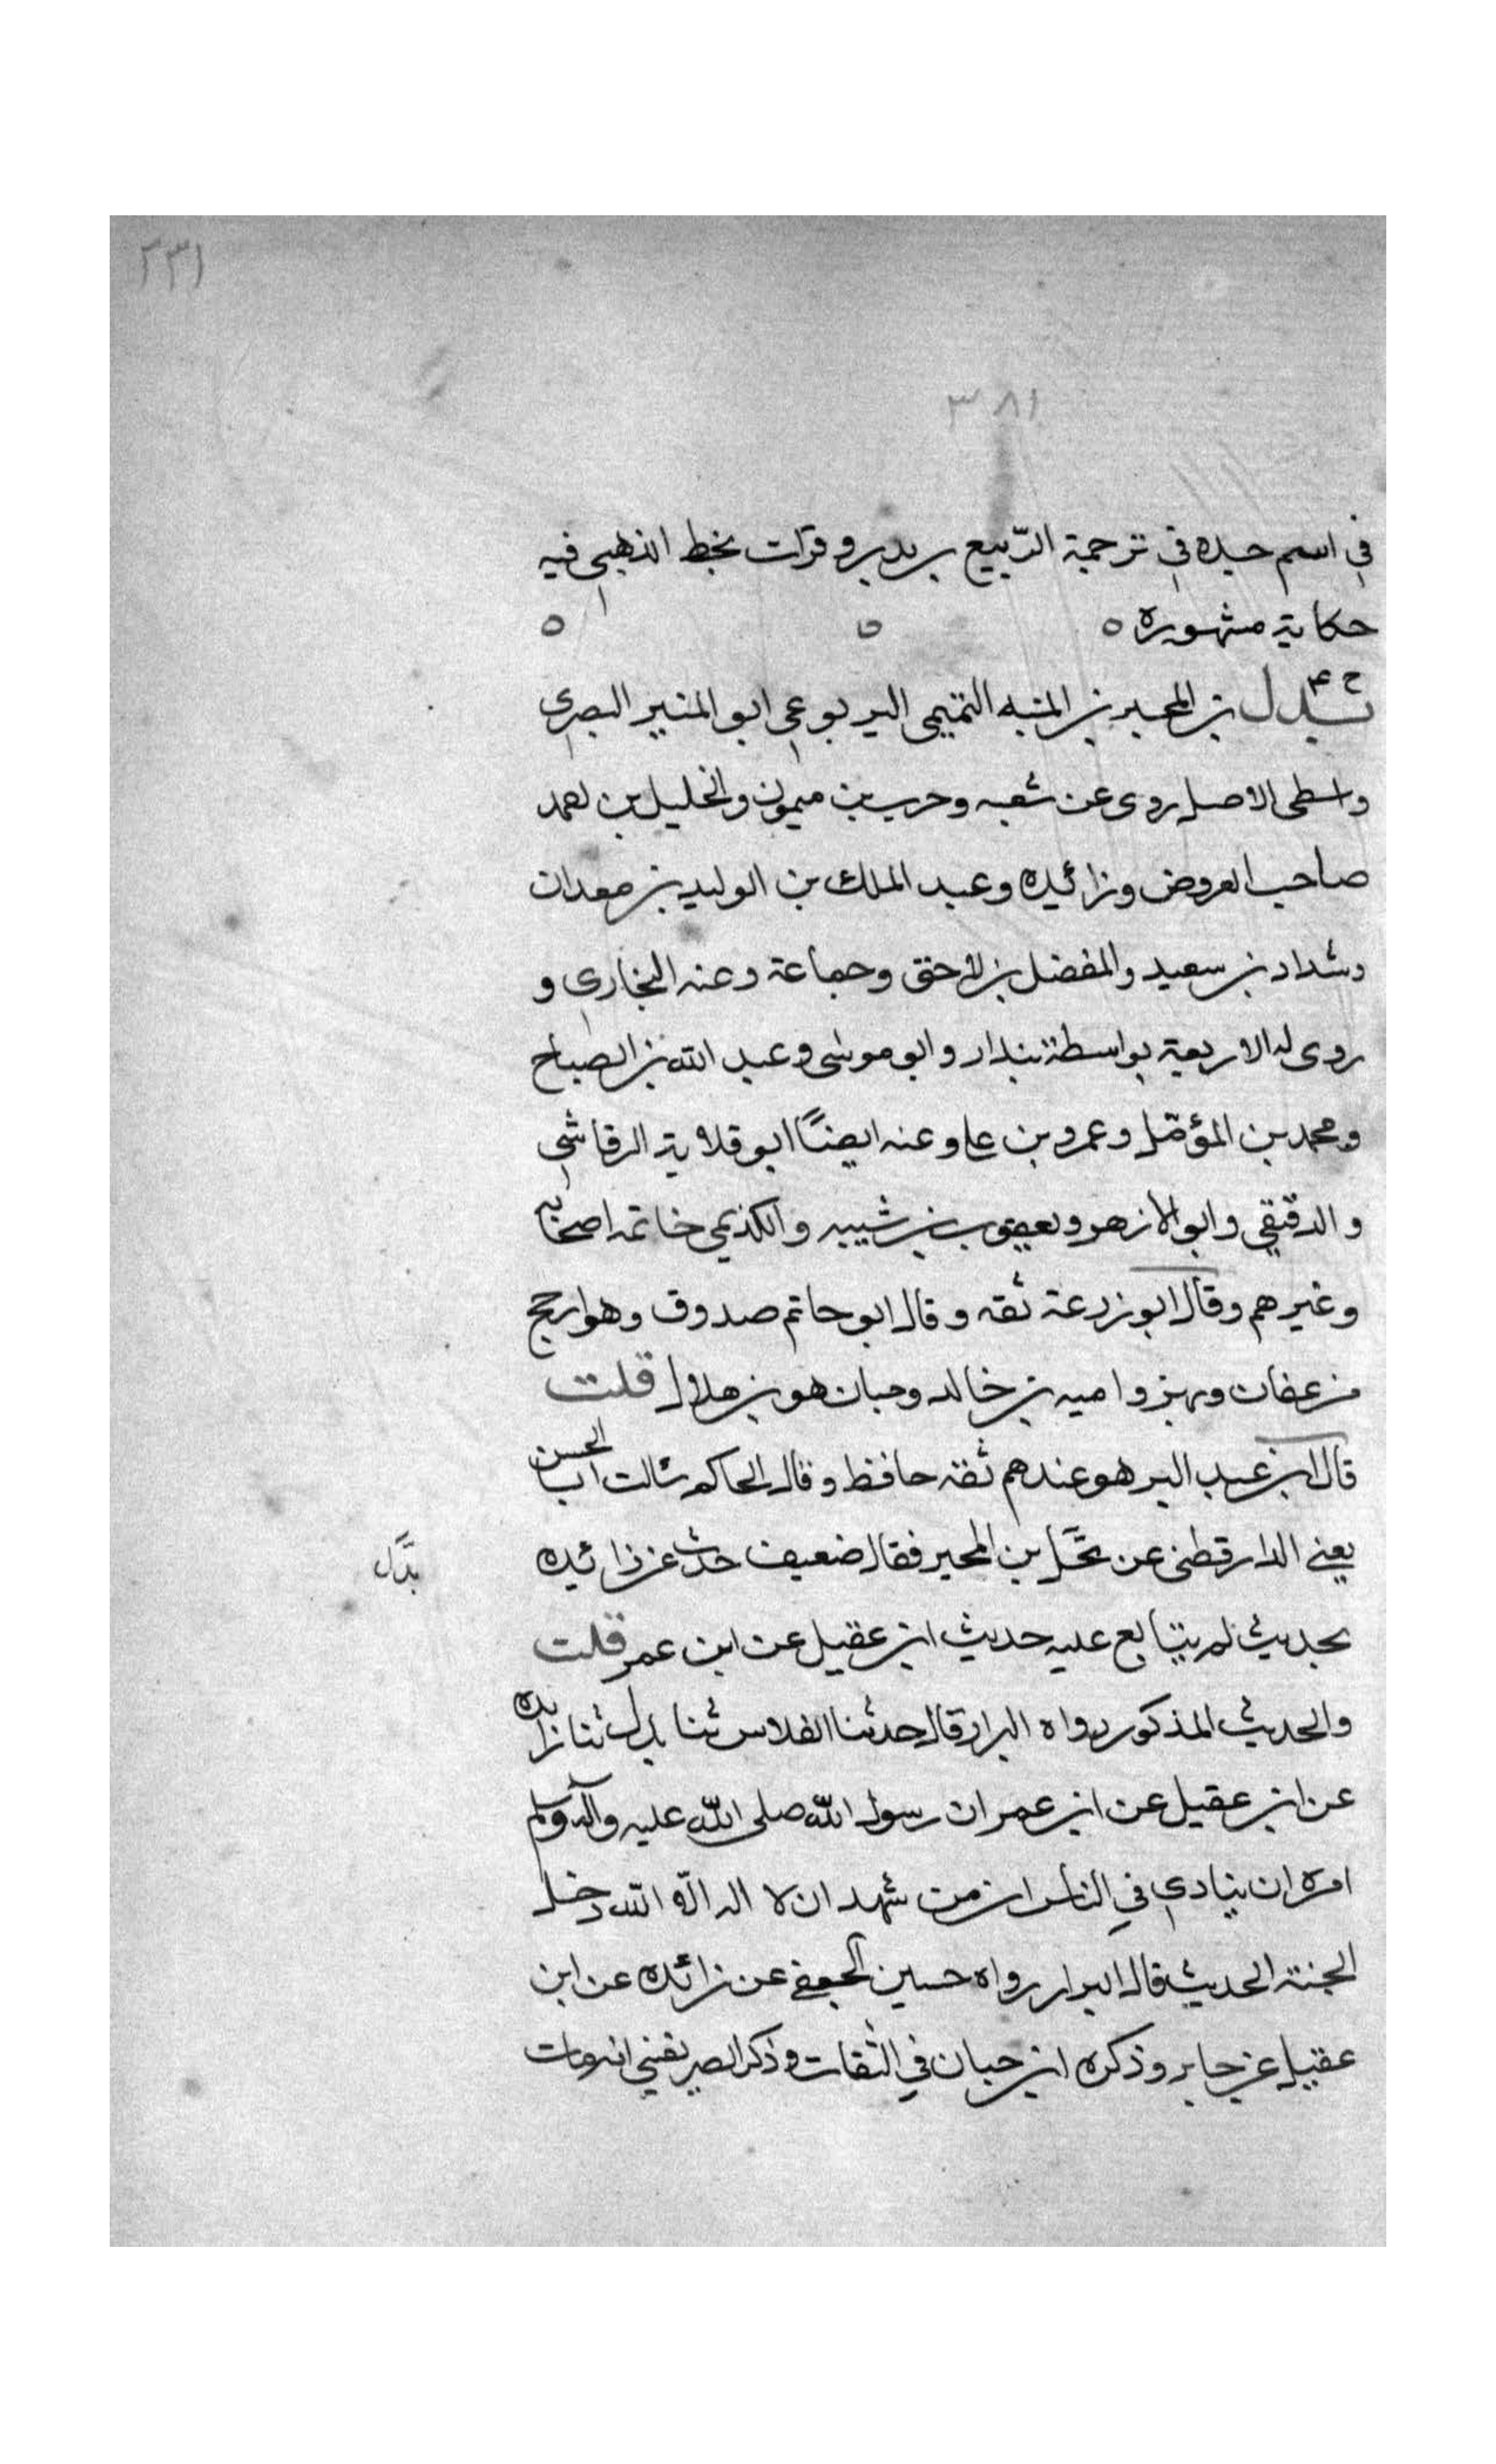 ٢٣١
٣٨١
في اسم جده في ترجمة الربيع بن بدر وقرات بخط الذهبي فيه
حكاية مشهورة ٥ ٥ ٥
خ ٤
بدل بن المحبر بن المنبه التميمي اليربوعي ابو المنير البصري
واسطي الاصل روى عن شعبه وحرب بن ميمون والخليل بن احمد
صاحب العروض وزائده وعبد الملك بن الوليد بن معدان
وشداد بن سعيد والمفضل بن لاحق وجماعة وعنه البخاري و
روى له الاربعة بواسطة بندار وابو موسى وعبد الله بن الصباح
ومحمد بن المؤمّل وعمرو بن علي وعنه ايضاً ابو قلابة الرقاشي
والدقيقي وابو الازهر ويعقوب بن شيبه والكديمي خاتمه اصحابه
وغيرهم وقال ابو زرعة ثقه وقال ابو حاتم صدوق وهو ارجح
من عفان وبهز واميه بن خالد وحبان هو بن هلال قلت
قال ابن عبد البر هو عندهم ثقه حافظ وقال الحاكم سالت ابا الحسن
يعني الدارقطني عن بن المحبر فقال ضعيف حدث عن زائده
بدَّل
بحديث لم يتابع عليه حديث ابن عقيل عن ابن عمر قلت
والحديث المذكور رواه البزار قال حدثنا الفلاس ثنا بدل ثنا زائده
عن ابن عقيل عن ابن عمر ان رسول الله صلى الله عليه وآله وسلم
امره ان ينادي في الناس ان من شهد ان لا اله الا الله دخل
الجنة الحديث قال البزار رواه حسين الجعفي عن زائده عن ابن
عقيل عن جابر وذكره ابن حبان في الثقات وذكر الصريفيني انه مات